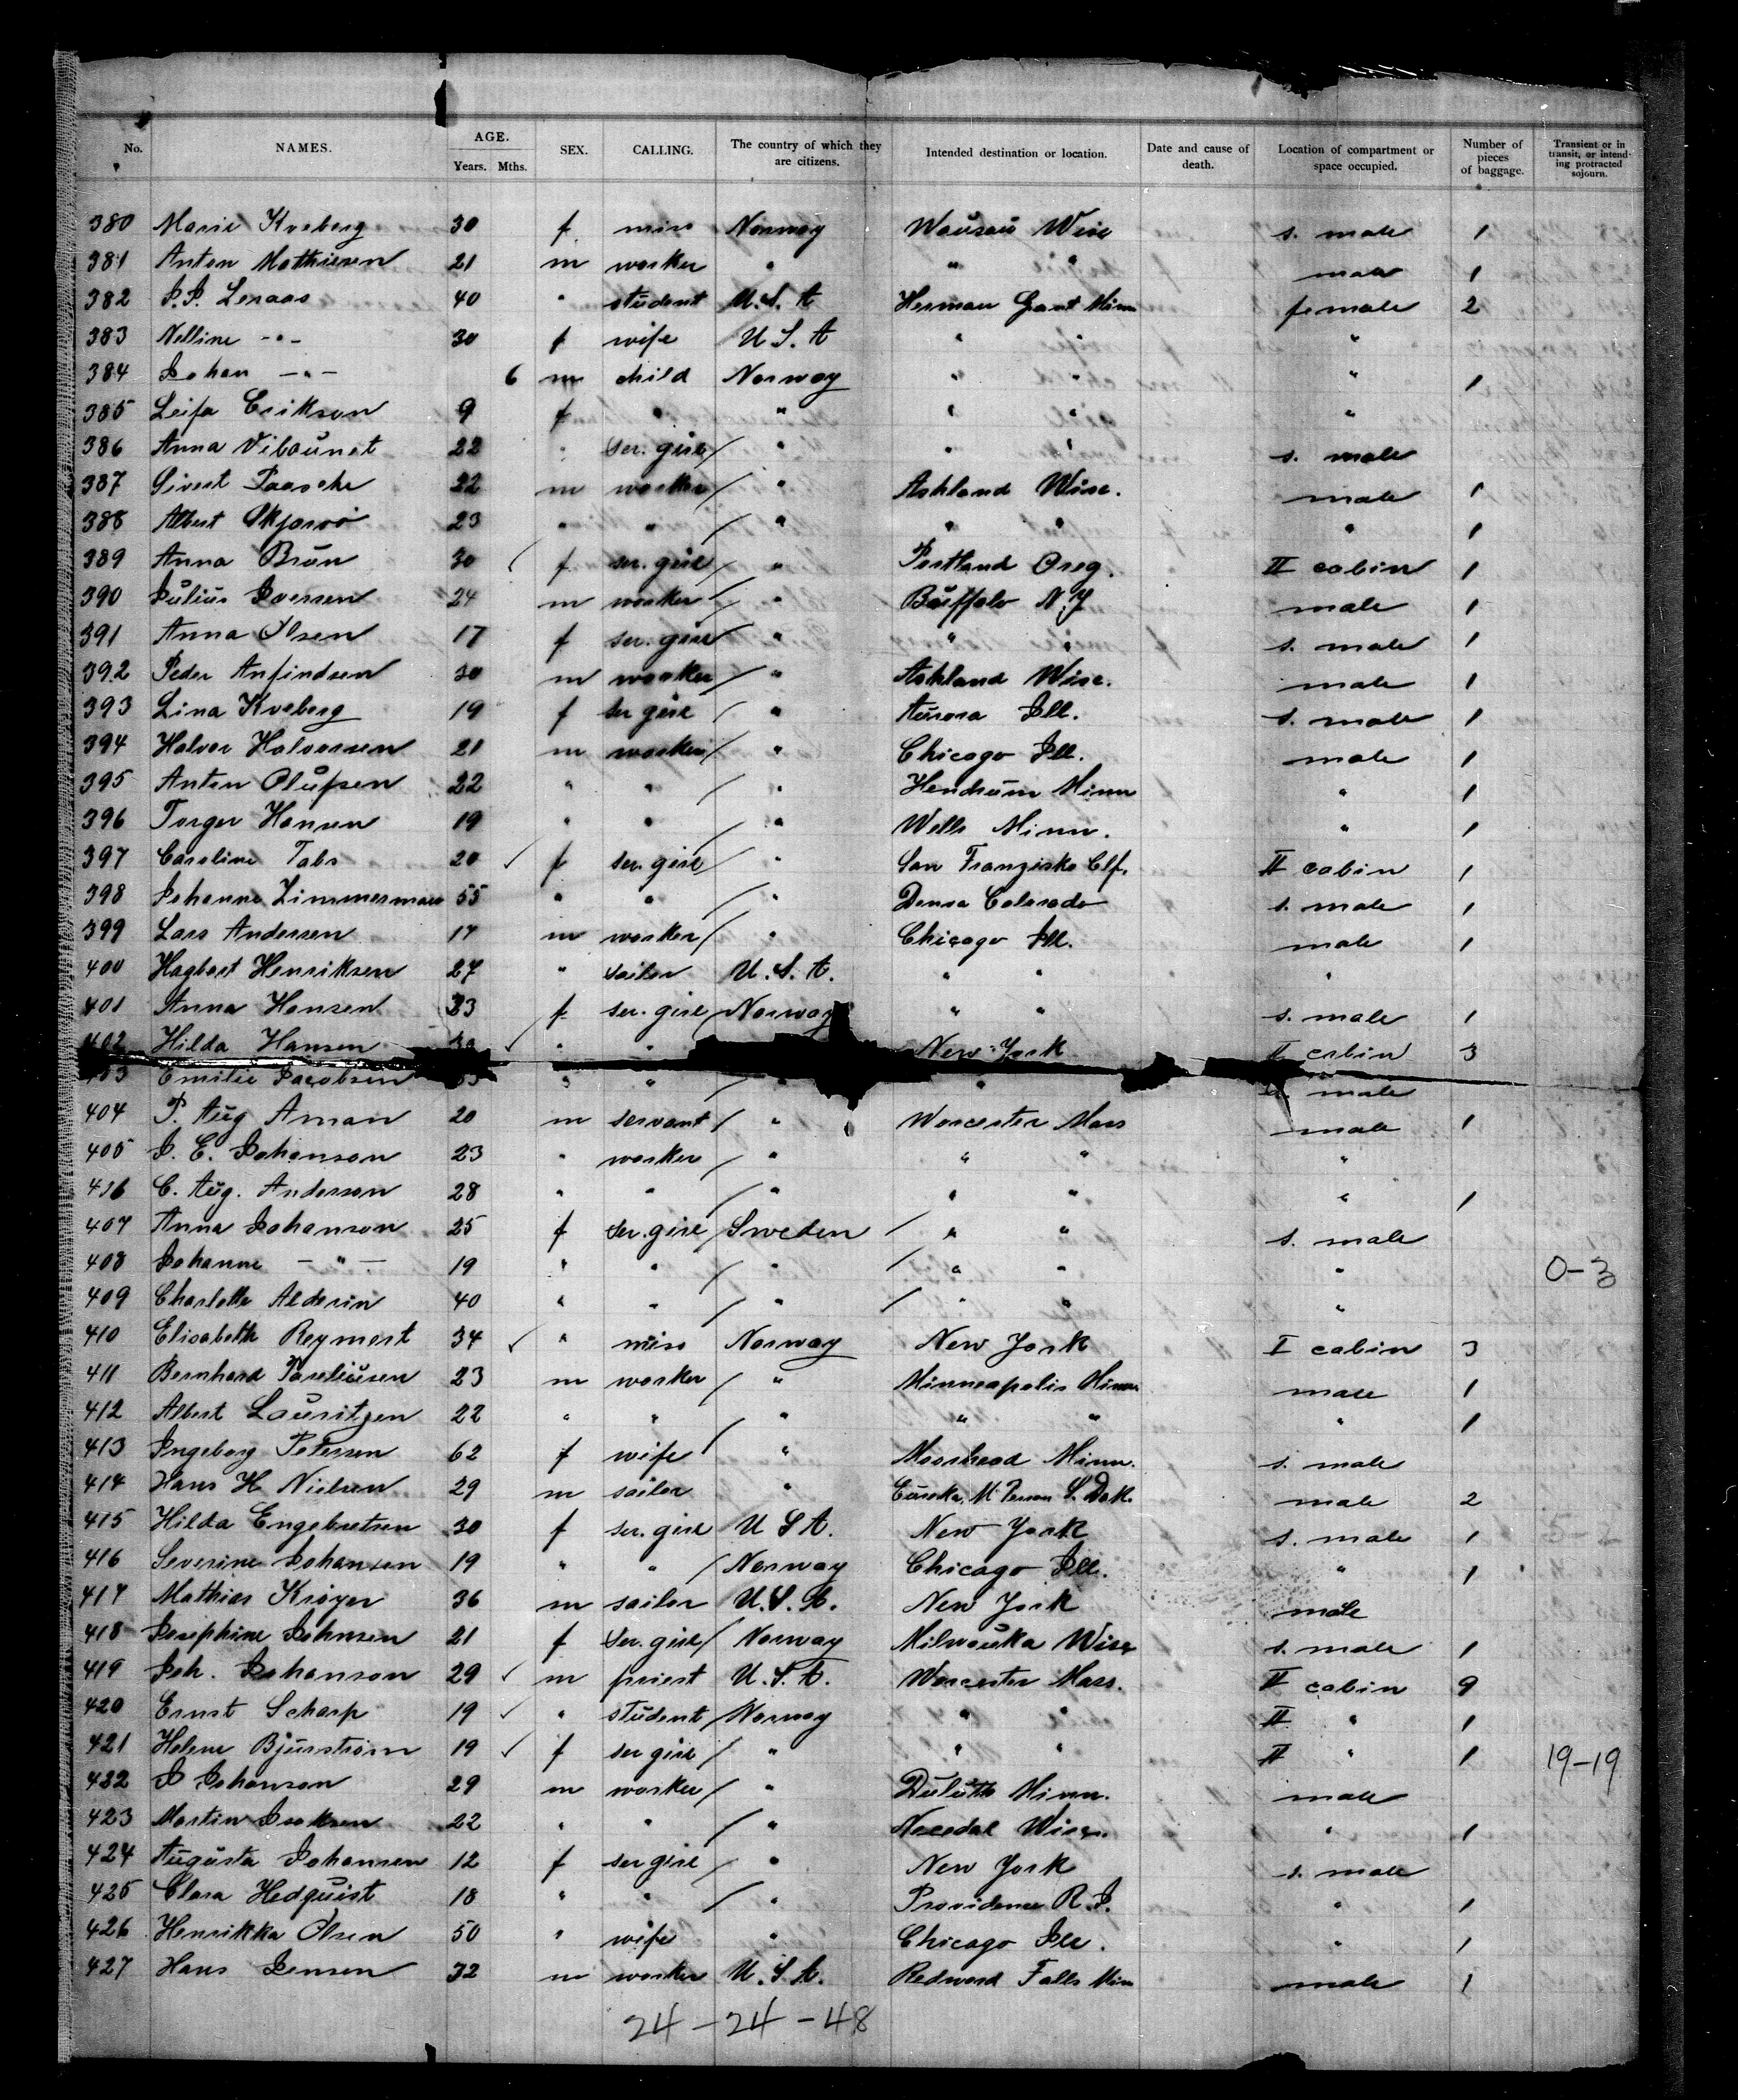 No. NAMES. AGE. Years. Mths. SEX. CALLING. The country of which they are citizens. Intended destination or location. Date and cause of death. Location of compartment or space occupied. Number of pieces of baggage. Transient or in transit, or intending protracted sojourn.
380 Marie Kveberg 30 f. miss Norway Wausau Wisc s. male 1
381 Anton Mathiesen 21 m worker " " " male 1
382 P.P. Lenaas 40 " student U.S.A Herman Grant Minn female 2
383 Nelline -"- 30 f wife U S. A " " "
384 Johan -"- 6 m child Norway " " " 1
385 Leifa Erikson 9 f " " " " "
386 Anna Vibaunet 22 " ser. girl / " " " s. male
387 Sivert Paasche 22 m worker / " Ashland Wisc. male 1
388 Albert Skjarvö 23 " " / " " " " 1
389 Anna Brun 30 f ser. girl / " Portland Oreg. II cabin 1
390 Julius Iversen 24 m worker / " Buffalo N.Y male 1
391 Anna Olsen 17 f ser. girl / " " " s. male 1
392 Peder Anfindsen 30 m worker / " Ashland Wisc. male 1
393 Lina Kveberg 19 f ser girl / " Aurora Ill. s. male 1
394 Halvor Halvorsen 21 m worker / " Chicago Ill. male 1
395 Anton Olufsen 22 " " / " Hendrum Minn " 1
396 Torger Hansen 19 " " / " Wells Minn. " 1
397 Caroline Tabs 20 ✓ f ser. girl / " San Franzisko Clf. II cabin 1
398 Johanne Zimmerman 55 " " / " Denva Colorado s. male 1
399 Lars Andersen 17 m worker / " Chicago Ill. male 1
400 Hagbart Henriksen 27 " sailor U.S.A. " " "
401 Anna Hansen 23 f ser. girl / Norway " " s. male 1
402 Hilda Hansen 30 ✓ " " New York II cabin 3
403 Emilie Jacobsen " " / " " s. male
404 P. Aug Aman 20 m servant / " Worcester Mass male 1
405 J. E. Johanson 23 " worker / " " " "
406 C. Aug. Anderson 28 " " / " " " " 1
407 Anna Johanson 25 f ser. girl / Sweden / " " s. male
408 Johanne -"- 19 " " / " / " " " 0-3
409 Charlotte Alderin 40 " " / " / " " "
410 Elisabeth Reymert 34 ✓ " miss Norway New York I cabin 3
411 Bernhard Pareliusen 23 m worker / " Minneapolis Minn male 1
412 Albert Lauritzen 22 " " / " " " " 1
413 Ingeborg Petersen 62 f wife / " Moorhead Minn. s. male
414 Hans H Nielsen 29 m sailor " Eureka, Mc Person S. Dak. male 2
415 Hilda Engebretsen 30 f ser. girl U S A. New York s. male 1
416 Severine Johansen 19 " " / Norway Chicago Ill. " 1
417 Mathias Kröyer 36 m sailor U.S.A. New York male
418 Josephine Johnsen 21 f ser. girl / Norway Milwauka Wisc s. male 1
419 Joh. Johanson 29 ✓ m priest U.S.A. Worcester Mass. II cabin 9
420 Ernst Scharp 19 ✓ " student / Norway " " II " 1
421 Helene Bjurström 19 ✓ f ser girl / " " " II " 1 19-19
422 J Johanson 29 m worker / " Duluth Minn. male
423 Martin Isaksen 22 " " / " Necedal Wisc. " 1
424 Augusta Johansen 12 f ser girl / " New York s. male
425 Clara Hedquist 18 " " / " Providence R.I. " 1
426 Henrikka Olsen 50 " wife " Chicago Ill. " 1
427 Hans Jensen 32 m worker U.S.A. Redword Falls Min male 1
24-24-48